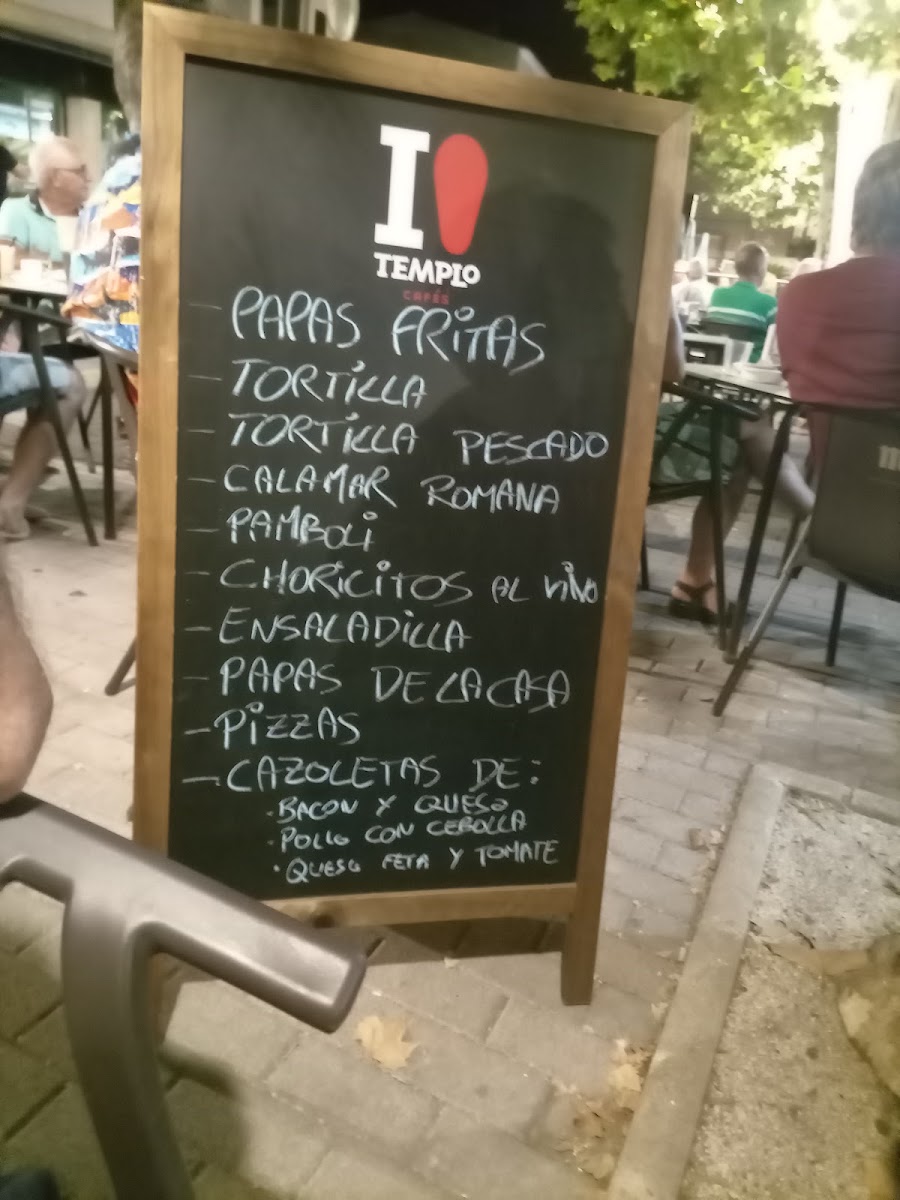 I
TEMPLO
CAFÉS
- PAPAS FRITAS
- TORTILLA
- TORTILLA PESCADO
- CALAMAR ROMANA
- PAMBOLI
- CHORICITOS AL VINO
- ENSALADILLA
- PAPAS DE LA CASA
- PIZZAS
- CAZOLETAS DE:
· BACON Y QUESO
· POLLO CON CEBOLLA
· QUESO FETA Y TOMATE